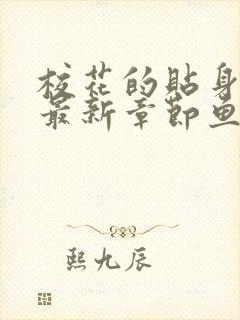 校花的贴身
最新章节鱼
熙九辰